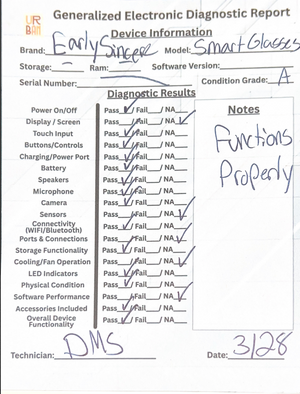 UR
BAN
Generalized Electronic Diagnostic Report
Device Information
Brand: Early Sincere Model: Smart Glasses
Storage: — Ram: — Software Version:
Serial Number: Condition Grade: A
Diagnostic Results
Power On/Off Pass ✓/ Fail__/ NA__
Display / Screen Pass__/ Fail__/ NA ✓
Touch Input Pass ✓/ Fail__/ NA__
Buttons/Controls Pass ✓/ Fail__/ NA__
Charging/Power Port Pass ✓/ Fail__/ NA__
Battery Pass ✓/ Fail__/ NA__
Speakers Pass ✓/ Fail__/ NA__
Microphone Pass ✓/ Fail__/ NA__
Camera Pass ✓/ Fail__/ NA__
Sensors Pass__/ Fail__/ NA ✓
Connectivity
(WIFI/Bluetooth) Pass ✓/ Fail__/ NA__
Ports & Connections Pass__/ Fail__/ NA ✓
Storage Functionality Pass ✓/ Fail__/ NA__
Cooling/Fan Operation Pass__/ Fail__/ NA ✓
LED Indicators Pass ✓/ Fail__/ NA__
Physical Condition Pass ✓/ Fail__/ NA__
Software Performance Pass__/ Fail__/ NA ✓
Accessories Included Pass ✓/ Fail__/ NA__
Overall Device
Functionality Pass ✓/ Fail__/ NA__
Notes
Functions
Properly
Technician: DMS Date: 3/28